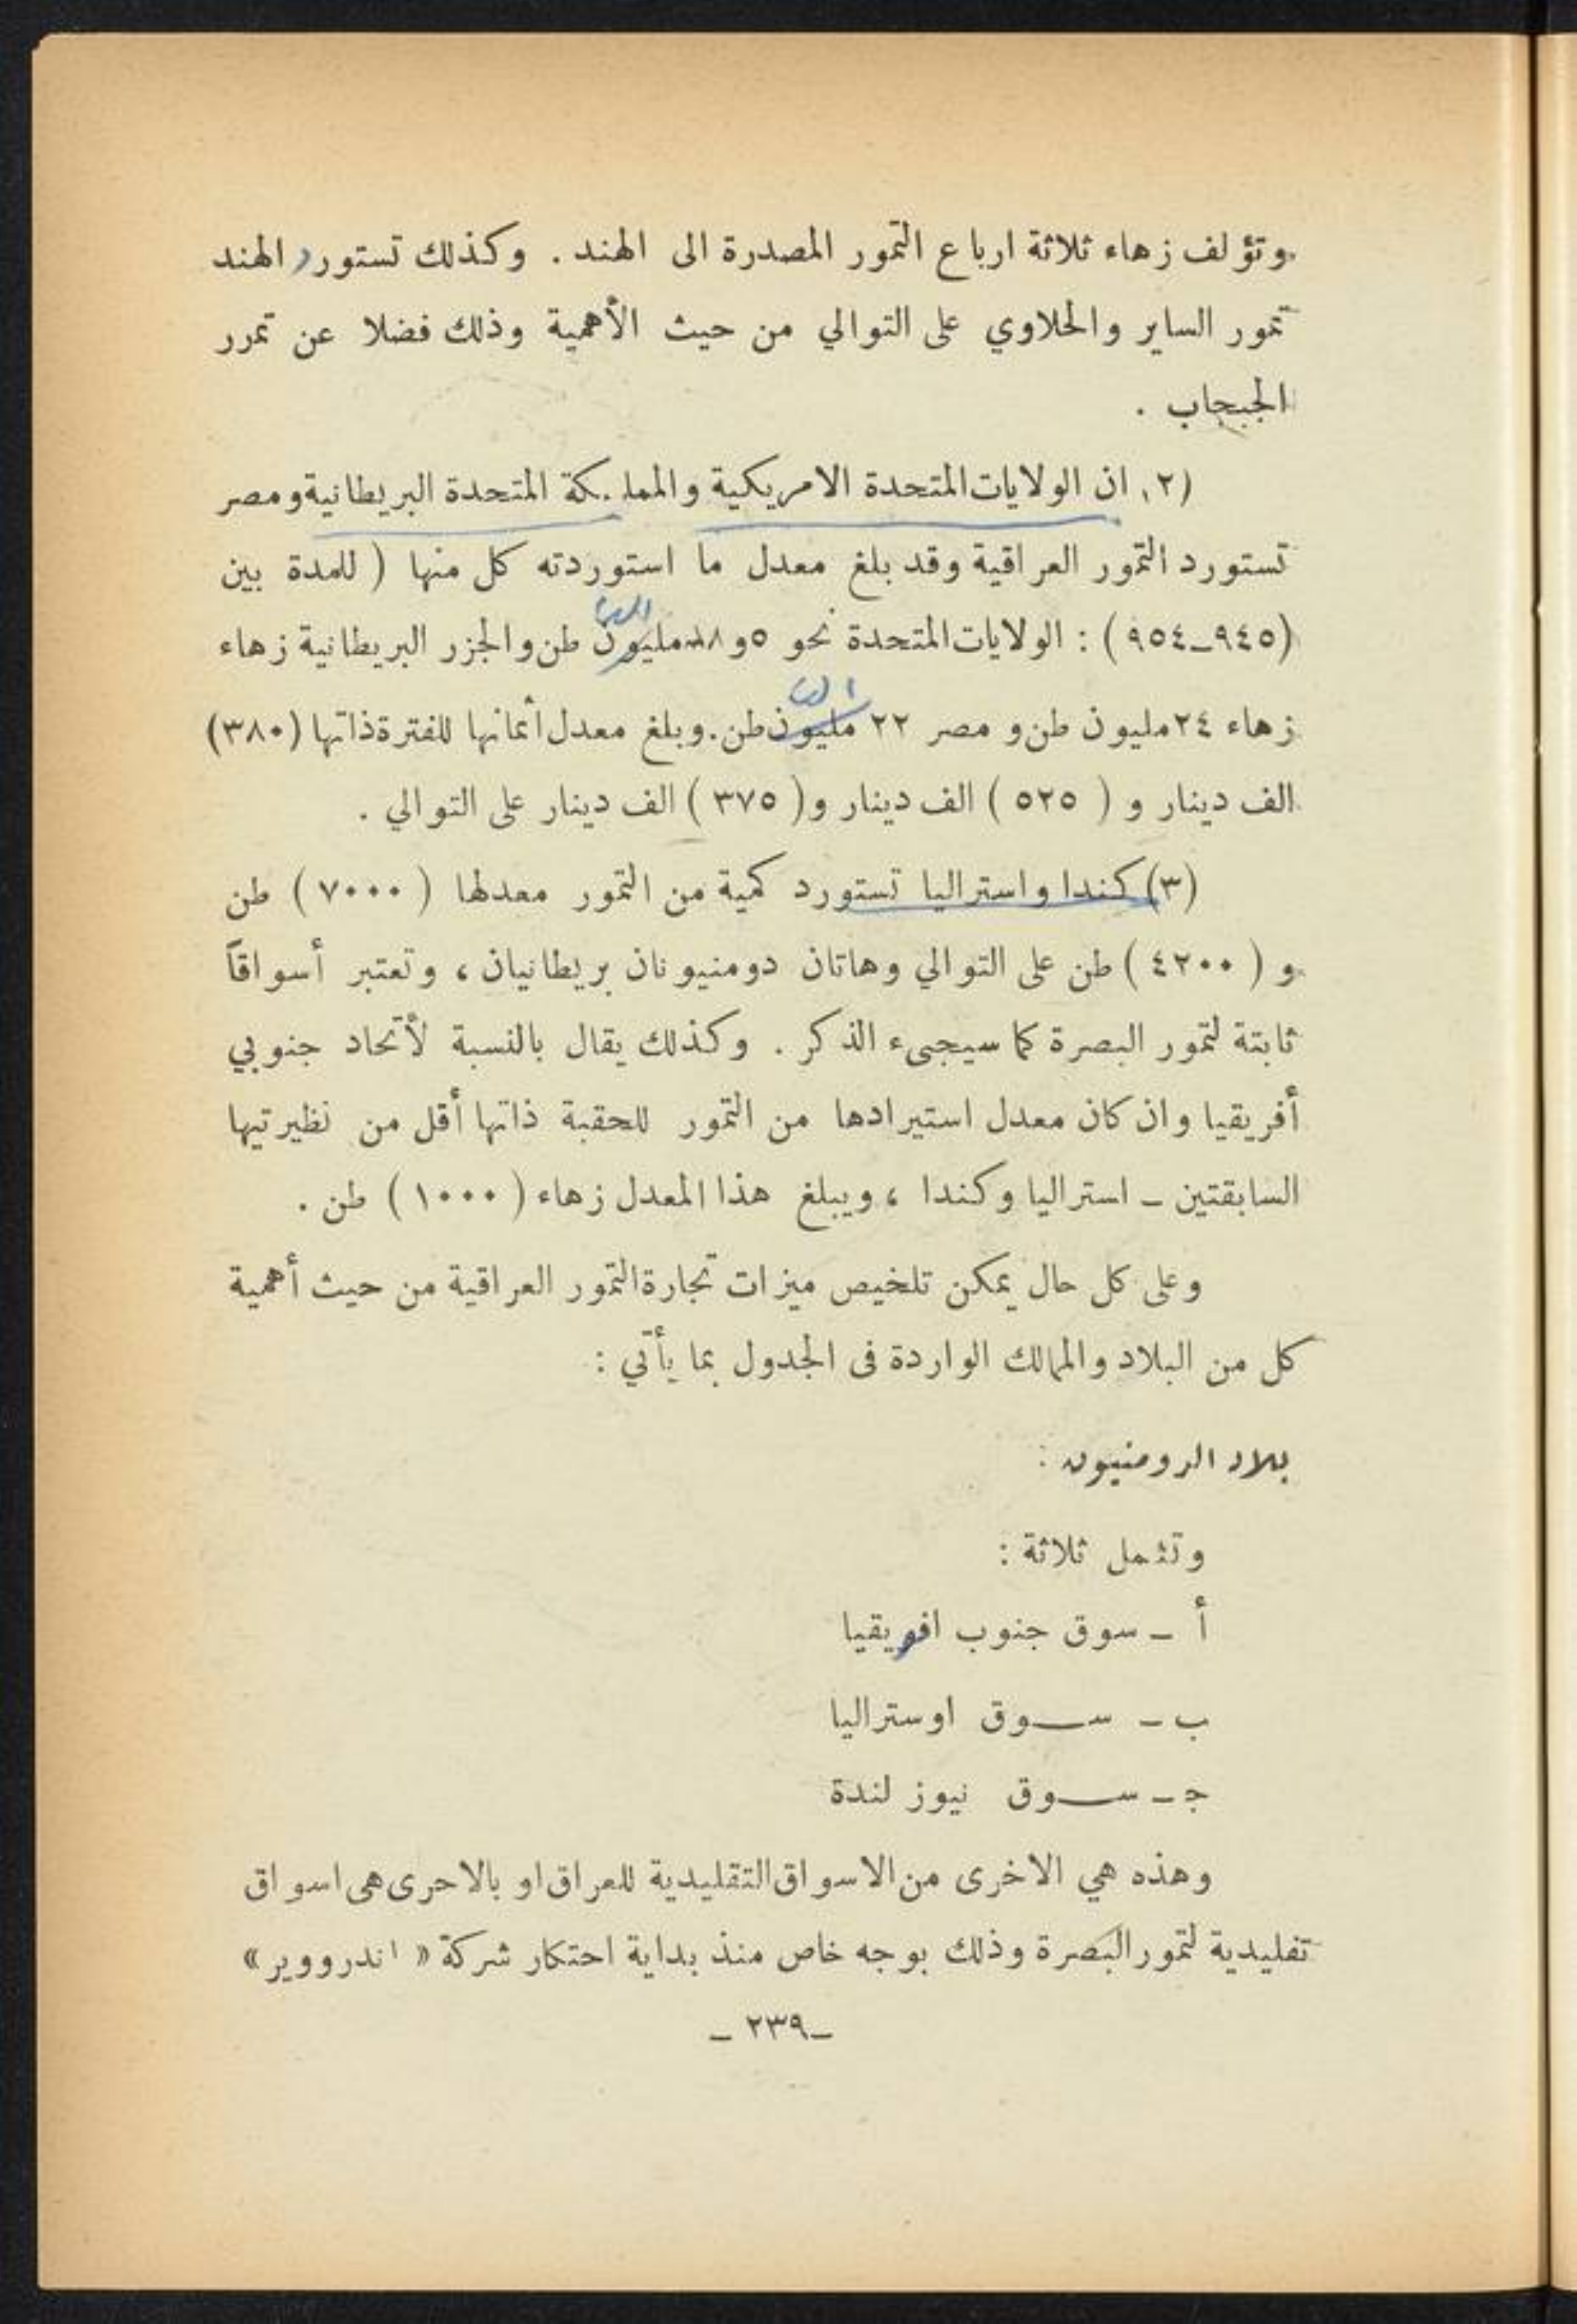 وتؤلف زهاء ثلاثة ارباع التمور المصدرة الى الهند . وكذلك تستورد الهند
تمور الساير والحلاوي على التوالي من حيث الأهمية وذلك فضلا عن تمرر
الجبجاب .
(٢) ان الولايات المتحدة الامريكية والمملكة المتحدة البريطانية ومصر
تستورد التمور العراقية وقد بلغ معدل ما استوردته كل منها ( للمدة بين
(٩٤٥ـ٩٥٤) : الولايات المتحدة نحو ٥و١٨ مليون طن والجزر البريطانية زهاء
زهاء ٢٤ مليون طن و مصر ٢٢ مليون طن . وبلغ معدل أثمانها للفترة ذاتها (٣٨٠)
الف دينار و ( ٥٢٥ ) الف دينار و( ٣٧٥ ) الف دينار على التوالي .
(٣) كندا واستراليا تستورد كمية من التمور معدلها ( ٧٠٠٠ ) طن
و ( ٤٢٠٠ ) طن على التوالي وهاتان دومنيونان بريطانيان ، وتعتبر أسواقاً
ثابتة لتمور البصرة كما سيجىء الذكر . وكذلك يقال بالنسبة لأتحاد جنوبي
أفريقيا وان كان معدل استيرادها من التمور للحقبة ذاتها أقل من نظيرتيها
السابقتين ـ استراليا وكندا ، ويبلغ هذا المعدل زهاء ( ١٠٠٠ ) طن .
وعلى كل حال يمكن تلخيص ميزات تجارة التمور العراقية من حيث أهمية
كل من البلاد والممالك الواردة فى الجدول بما يأتي :
بلاد الدومنيون :
وتشمل ثلاثة :
أ ـ سوق جنوب افريقيا
ب ـ ســوق اوستراليا
جـ ـ ســوق نيوز لندة
وهذه هي الاخرى من الاسواق التقليدية للعراق او بالاحرى هى اسواق
تقليدية لتمور البصرة وذلك بوجه خاص منذ بداية احتكار شركة « اندرووير »
ـ ٢٣٩ ـ